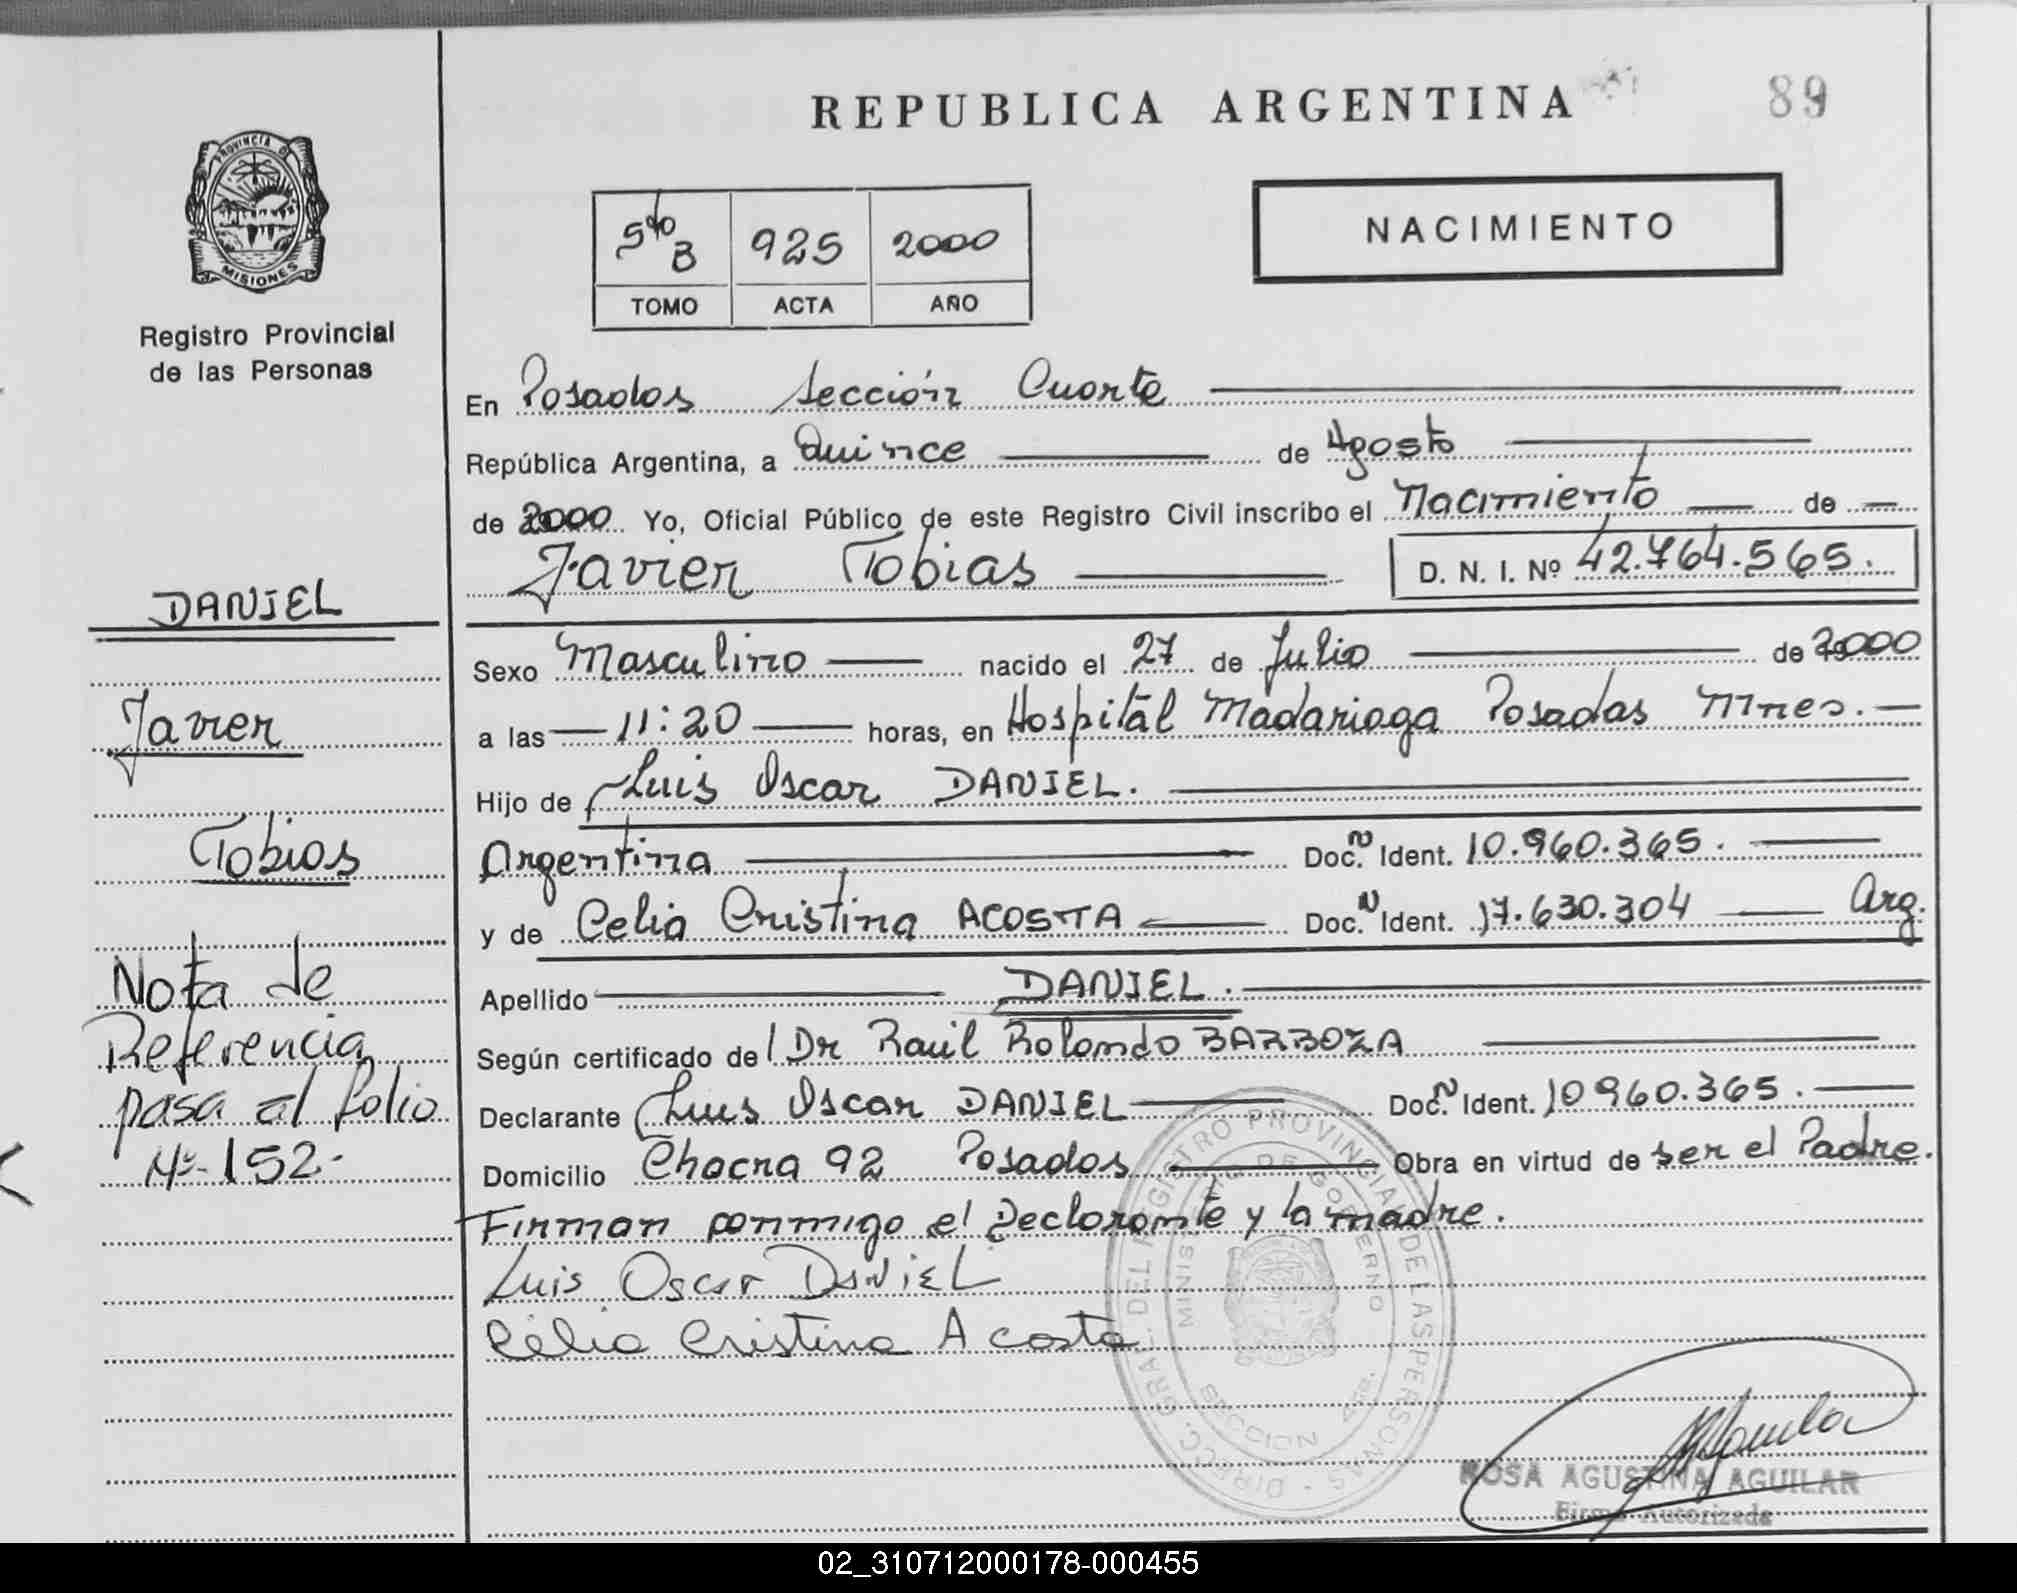 REPUBLICA ARGENTINA
89
PROVINCIA DE
MISIONES
Registro Provincial
de las Personas
5to B 925 2000
TOMO ACTA AÑO
NACIMIENTO
En Posadas Sección Cuarta
República Argentina, a Quince de Agosto
de 2000 Yo, Oficial Público de este Registro Civil inscribo el Nacimiento de
Javier Tobias D. N. I. Nº 42.764.565.
DANIEL
Javier
Tobias
Nota de
Referencia
pasa al folio
Nº-152-
Sexo Masculino nacido el 27 de Julio de 2000
a las 11:20 horas, en Hospital Madariaga Posadas Mnes.
Hijo de Luis Oscar DANIEL.
Argentina Doc. N Ident. 10.960.365.
y de Celia Cristina ACOSTA Doc. N Ident. 17.630.304 Arg.
Apellido DANIEL.
Según certificado del Dr Raúl Rolando BARBOZA
Declarante Luis Oscar DANIEL Doc. N Ident. 10960.365.
Domicilio Chacra 92 Posadas Obra en virtud de ser el Padre.
Firman conmigo el Declarante y la madre.
Luis Oscar DaNiEL
Celia Cristina Acosta
DIRECC. GRAL. DEL REGISTRO PROVINCIAL DE LAS PERSONAS
MINISTERIO DE GOBIERNO
SECCION 4ta.
ROSA AGUSTINA AGUILAR
Firma Autorizada
02_310712000178-000455